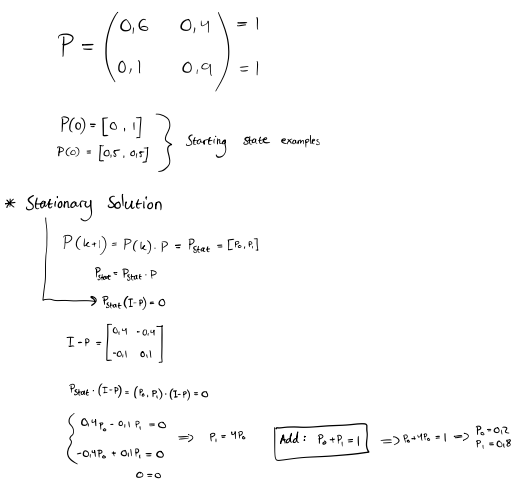 P = ( 0,6 0,4 ) = 1
( 0,1 0,9 ) = 1
P(0) = [0 , 1]
P(0) = [0,5 , 0,5] } Starting state examples
* Stationary Solution
P(k+1) = P(k) . P = P_stat = [P₀, P₁]
P_stat = P_stat . P
P_stat (I-P) = 0
I - P = [ 0,4 -0,4
-0,1 0,1 ]
P_stat . (I-P) = (P₀, P₁) . (I-P) = 0
{ 0,4P₀ - 0,1P₁ = 0
-0,4P₀ + 0,1P₁ = 0
0 = 0
=> P₁ = 4P₀
Add: P₀ + P₁ = 1
=> P₀ + 4P₀ = 1 => P₀ = 0,2
P₁ = 0,8